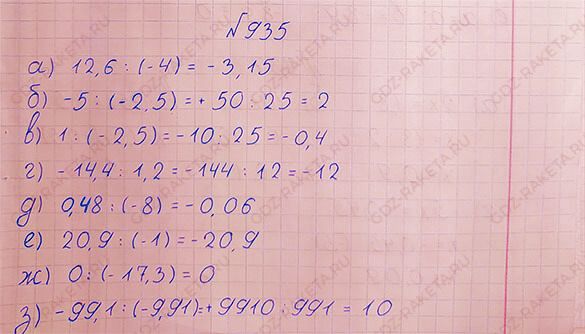 №935
а) 12,6 : (-4) = - 3,15
б) -5 : (-2,5) = + 50 : 25 = 2
в) 1 : (-2,5) = -10 : 25 = -0,4
г) -14,4 : 1,2 = -144 : 12 = -12
д) 0,48 : (-8) = -0,06
е) 20,9 : (-1) = -20,9
ж) 0 : (-17,3) = 0
з) -99,1 : (-9,91) = + 9910 : 991 = 10
GDZ-RAKETA.RU